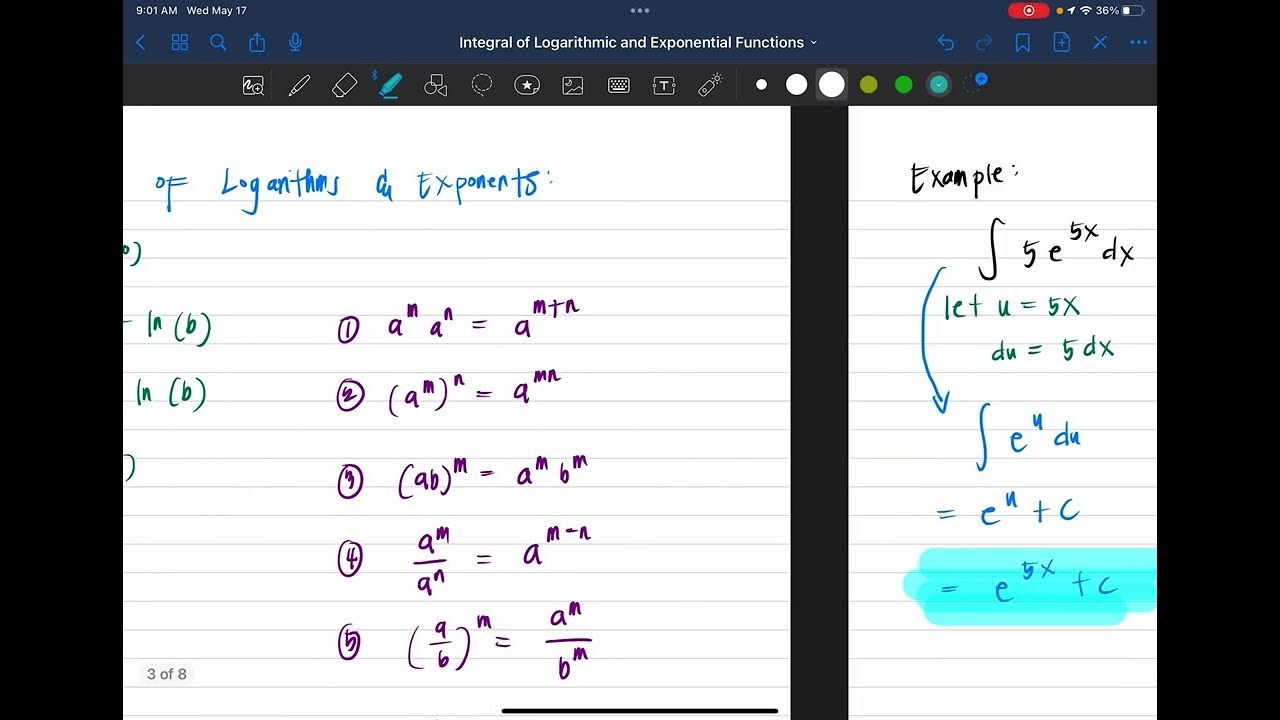 9:01 AM Wed May 17
36%
Integral of Logarithmic and Exponential Functions
T
of Logarithms & Exponents:
ln (b)
ln (b)
)
① a^m a^n = a^{m+n}
② (a^m)^n = a^{mn}
③ (ab)^m = a^m b^m
④ a^m / a^n = a^{m-n}
⑤ (a/b)^m = a^m / b^m
3 of 8
Example:
∫ 5 e^{5x} dx
let u = 5x
du = 5 dx
∫ e^u du
= e^u + c
= e^{5x} + c